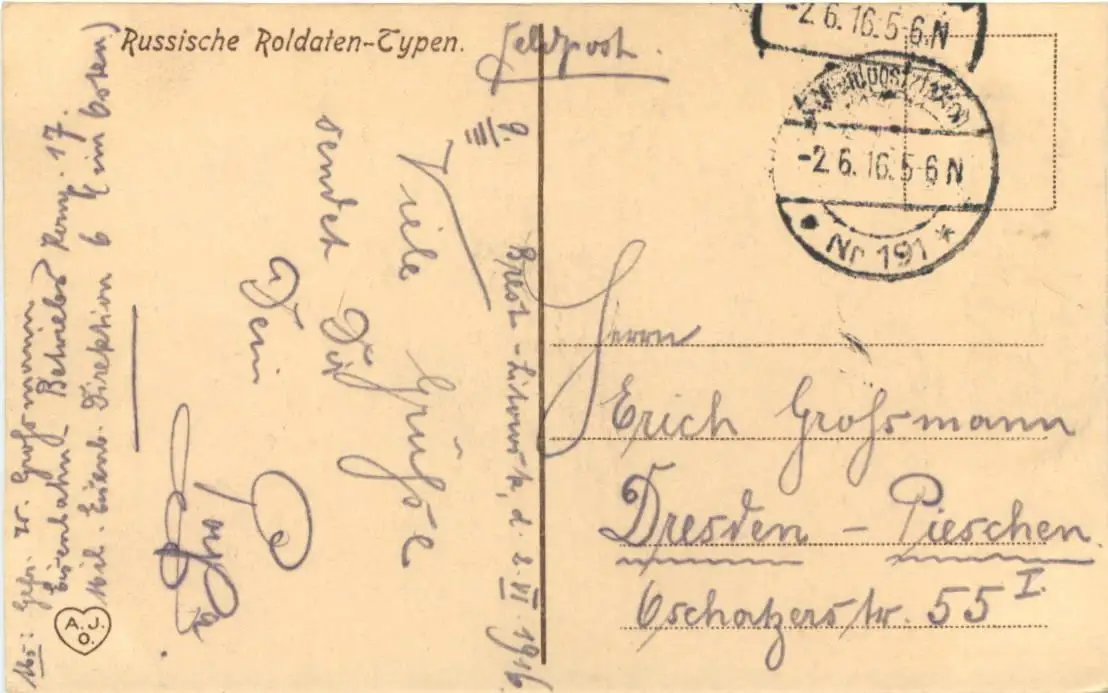 Russische Roldaten-Typen.
Feldpost.
9.
III
Brest-Litowsk, d. 2. VI. 1916
Viele Grüße
sendet Dir
Dein
Abs: Gefr. W. Großmann
Eisenbahn Betriebs Komp. 17.
Mil. Eisenb. Direktion 6 (im Osten)
A.J.
O.
-2.6.16.5-6 N
-2.6.16.5-6 N
* Nr 191 *
Herrn
Erich Großmann
Dresden - Pieschen
Oschatzerstr. 55 I.